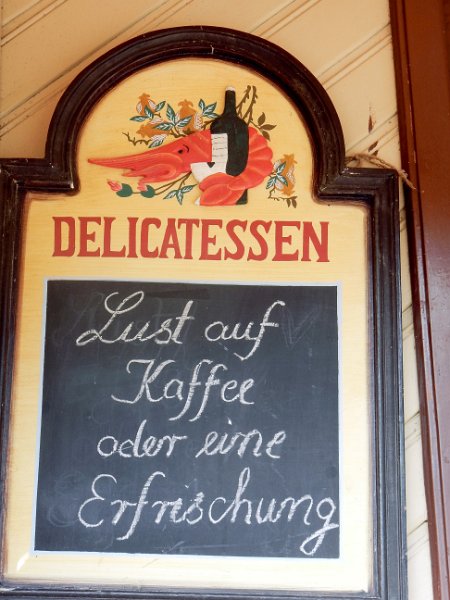 DELICATESSEN
Lust auf
Kaffee
oder eine
Erfrischung